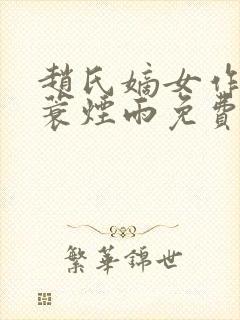 趙氏嫡女作
蓑煙雨免費
繁華錦世